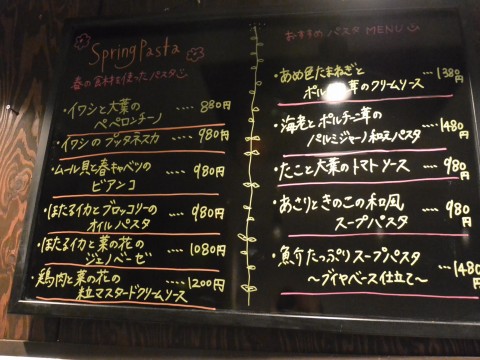 Spring Pasta
春の食材を使ったパスタ
・イワシと大葉の
ペペロンチーノ ････ 880円
・イワシのプッタネスカ ････ 980円
・ムール貝と春キャベツの
ビアンコ ････ 980円
・ほたるイカとブロッコリーの
オイルパスタ ････ 980円
・ほたるイカと菜の花の
ジェノベーゼ ････ 1080円
・鶏肉と菜の花の
粒マスタードクリームソース ････ 1200円
おすすめ パスタ MENU
・あめ色たまねぎと
ポル 茸のクリームソース ･･･ 1380円
・海老とポルチーニ茸の
パルミジャーノ和えパスタ ････ 1480円
・たこと大葉のトマトソース ････ 980円
・あさりときのこの和風
スープパスタ ････ 980円
・魚介たっぷりスープパスタ
～ブイヤベース仕立て～ ････ 1480円